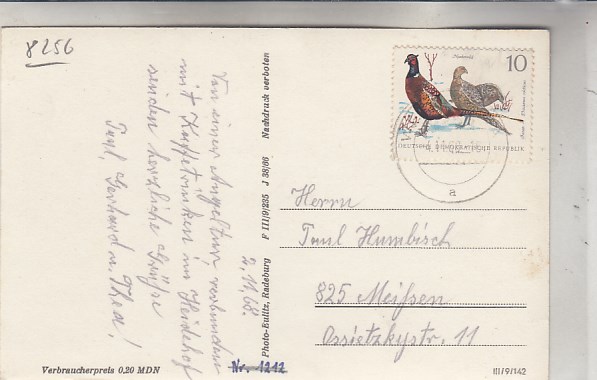 8256
Von einer Angeltour, verbunden
mit Kaffetrinken im Heidehof
senden herzliche Grüße
Paul, Gerhard u. Thea!
2.11.68.
Verbraucherpreis 0,20 MDN
Photo-Eulitz, Radeburg F III/9/235 J 38/66 Nachdruck verboten
Nr. 1212
10
DEUTSCHE DEMOKRATISCHE REPUBLIK
a
Herrn
Paul Humbisch
825 Meißen
Ossietzkystr. 11
III/9/142